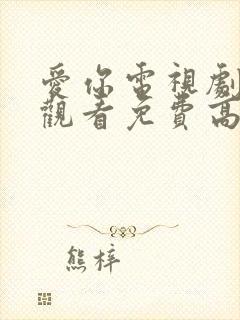 愛你電視劇
觀看免費高
熊梓